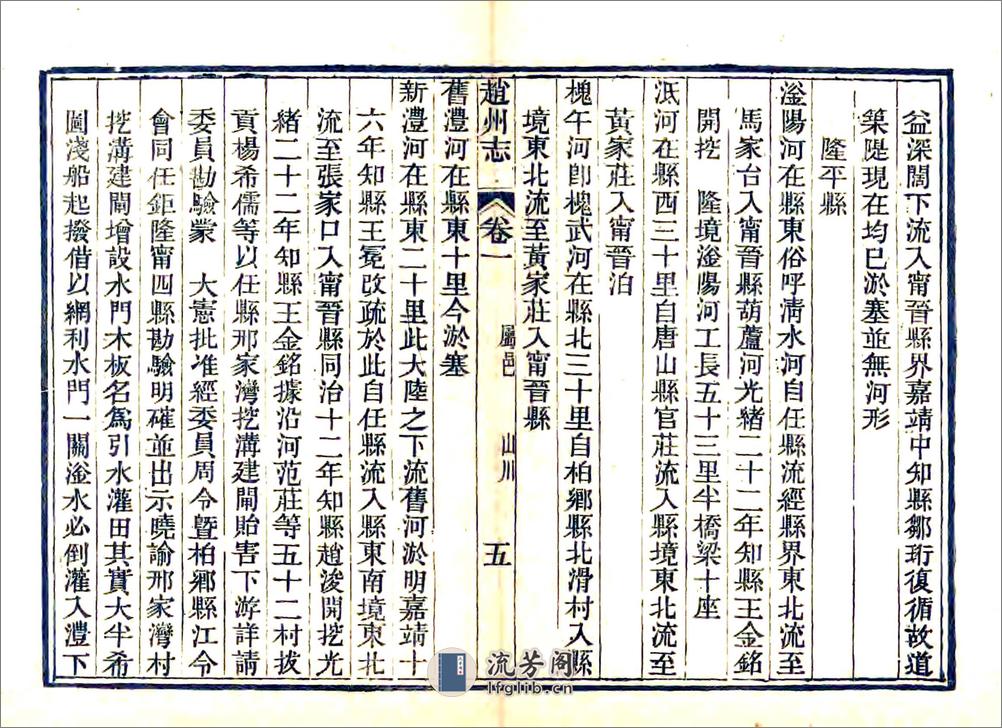 益深闊下流入甯晉縣界嘉靖中知縣鄒珩復循故道
築隄現在均已淤塞並無河形
隆平縣
滏陽河在縣東俗呼淸水河自任縣流經縣界東北流至
馬家台入甯晉縣葫蘆河光緒二十二年知縣王金銘
開挖　隆境滏陽河工長五十三里半橋梁十座
泜河在縣西三十里自唐山縣官莊流入縣境東北流至
黃家莊入甯晉泊
槐午河卽槐武河在縣北三十里自柏鄉縣北滑村入縣
境東北流至黃家莊入甯晉縣
趙州志 卷一 屬邑 山川 五
舊澧河在縣東十里今淤塞
新澧河在縣東二十里此大陸之下流舊河淤明嘉靖十
六年知縣王冕改疏於此自任縣流入縣東南境東北
流至張家口入甯晉縣同治十二年知縣趙浚開挖光
緒二十二年知縣王金銘據沿河范莊等五十二村拔
貢楊希儒等以任縣邢家灣挖溝建閘貽害下游詳請
委員勘驗蒙　大憲批准經委員周令曁柏鄉縣江令
會同任鉅隆甯四縣勘驗明確並出示曉諭邢家灣村
挖溝建閘增設水門木板名爲引水灌田其實大半希
圖淺船起撥借以網利水門一關滏水必倒灌入澧下
流芳阁
lfglib.cn